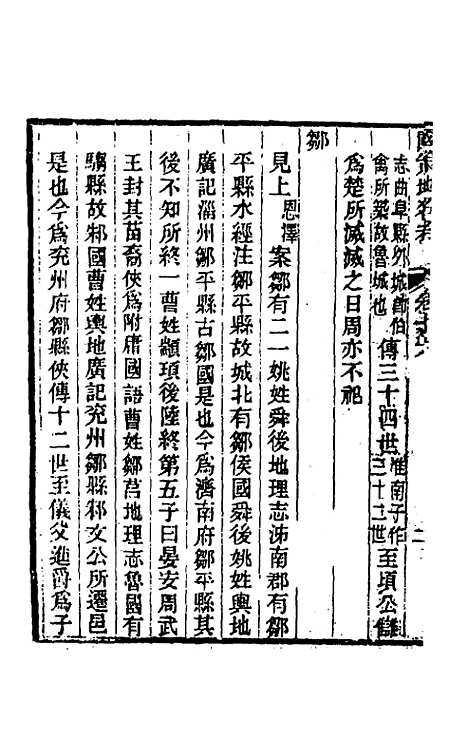 國策地名考
志曲阜縣外城卽伯
禽所築故魯城也
傳三十四世
淮南子作
三十二世
至頃公讎
爲楚所滅滅之日周亦不祀
鄒
見上
恩澤
案鄒有二一姚姓舜後地理志沛南郡有鄒
平縣水經注鄒平縣故城北有鄒侯國舜後姚姓輿地
廣記淄州鄒平縣古鄒國是也今爲濟南府鄒平縣其
後不知所終一曹姓顓頊後陸終第五子曰晏安周武
王封其苗裔俠爲附庸國語曹姓鄒莒地理志魯國有
騶縣故邾國曹姓輿地廣記兖州鄒縣邾文公所遷邑
是也今爲兖州府鄒縣俠傳十二世至儀父進爵爲子